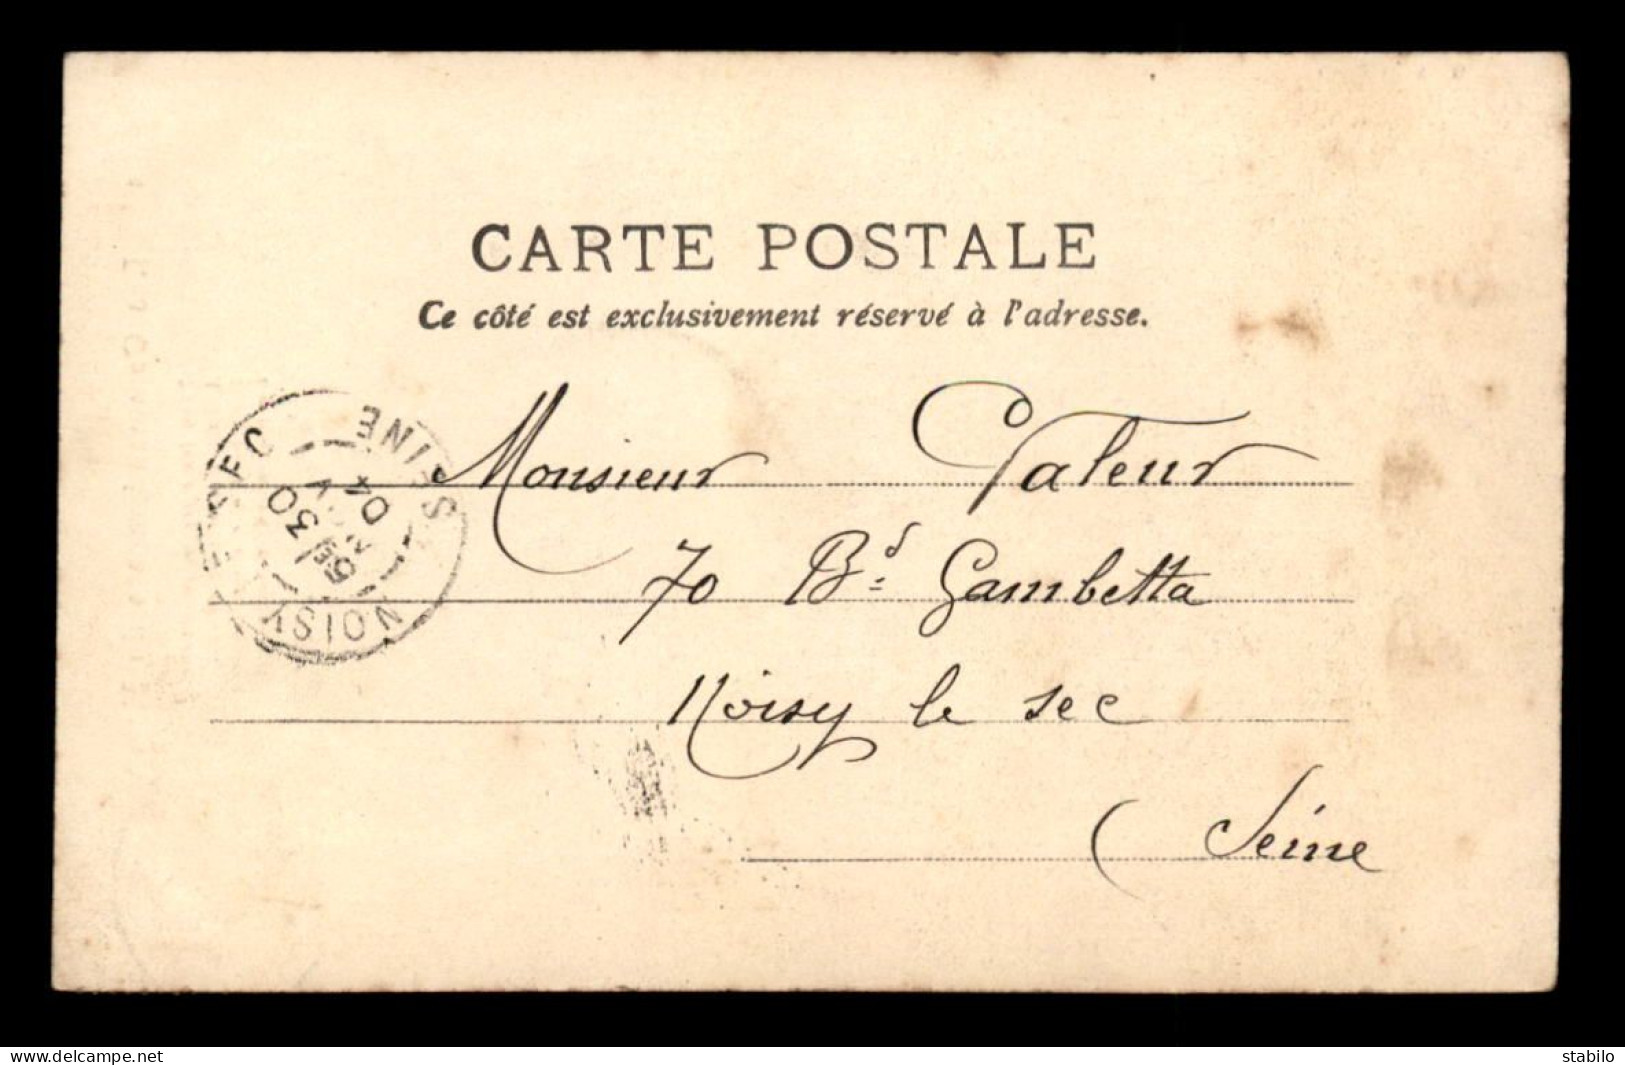 CARTE POSTALE
Ce côté est exclusivement réservé à l'adresse.
Monsieur Valeur
70 Bd Gambetta
Noisy le sec
(Seine
NOISY-LE-SEC SEINE
30
04
www.delcampe.net
stabilo